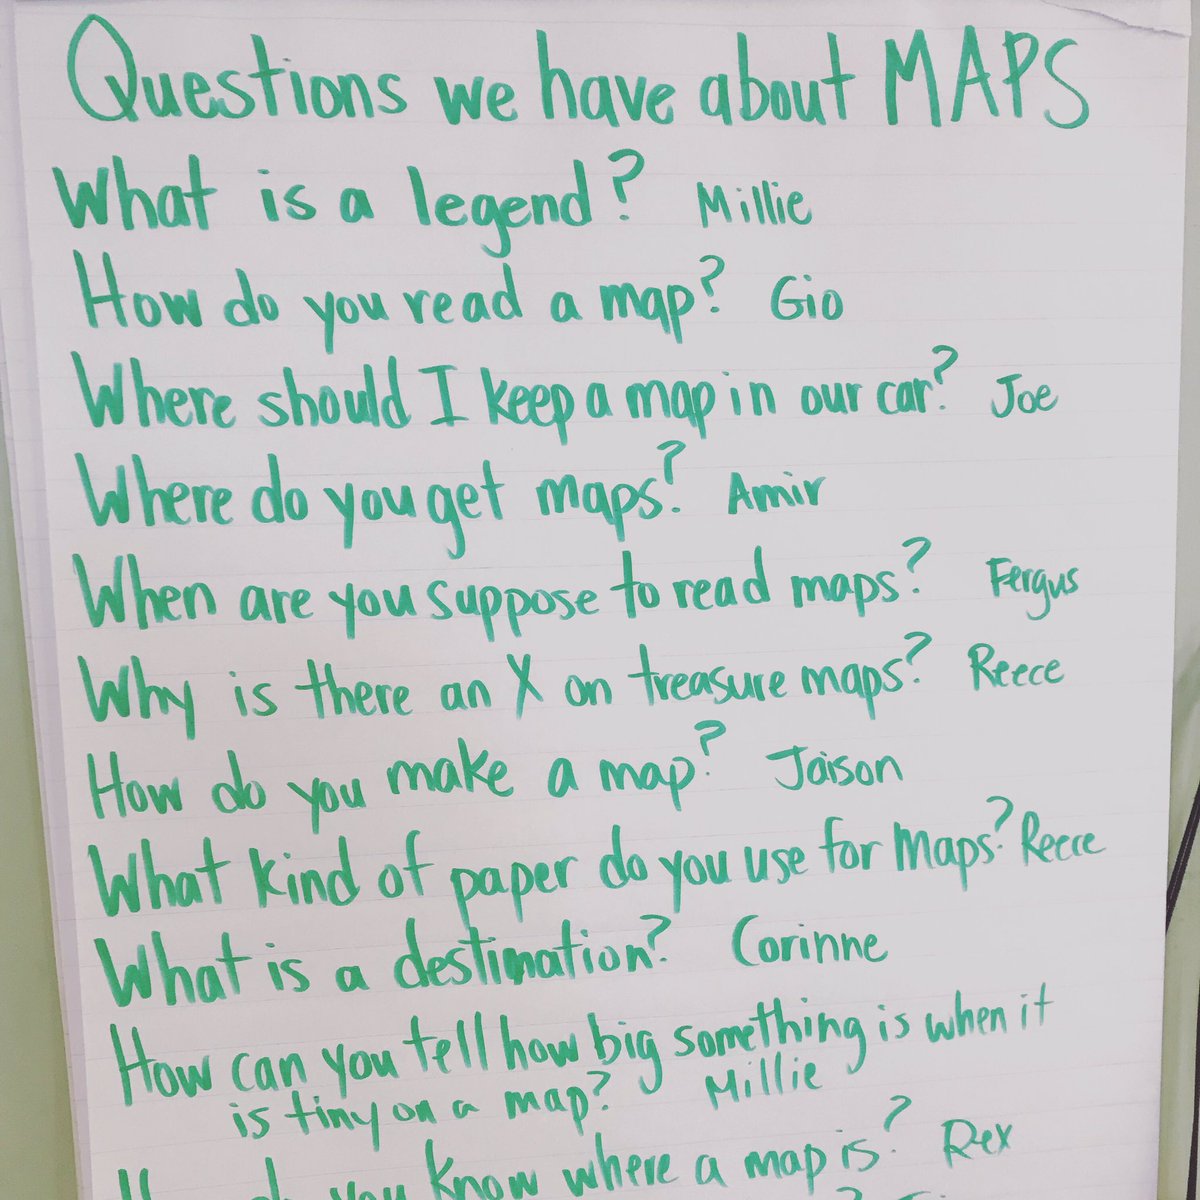 Questions we have about MAPS
What is a legend? Millie
How do you read a map? Gio
Where should I keep a map in our car? Joe
Where do you get maps? Amir
When are you suppose to read maps? Fergus
Why is there an X on treasure maps? Reece
How do you make a map? Jaison
What kind of paper do you use for maps? Reece
What is a destination? Corinne
How can you tell how big something is when it
is tiny on a map? Millie
you know where a map is? Rex